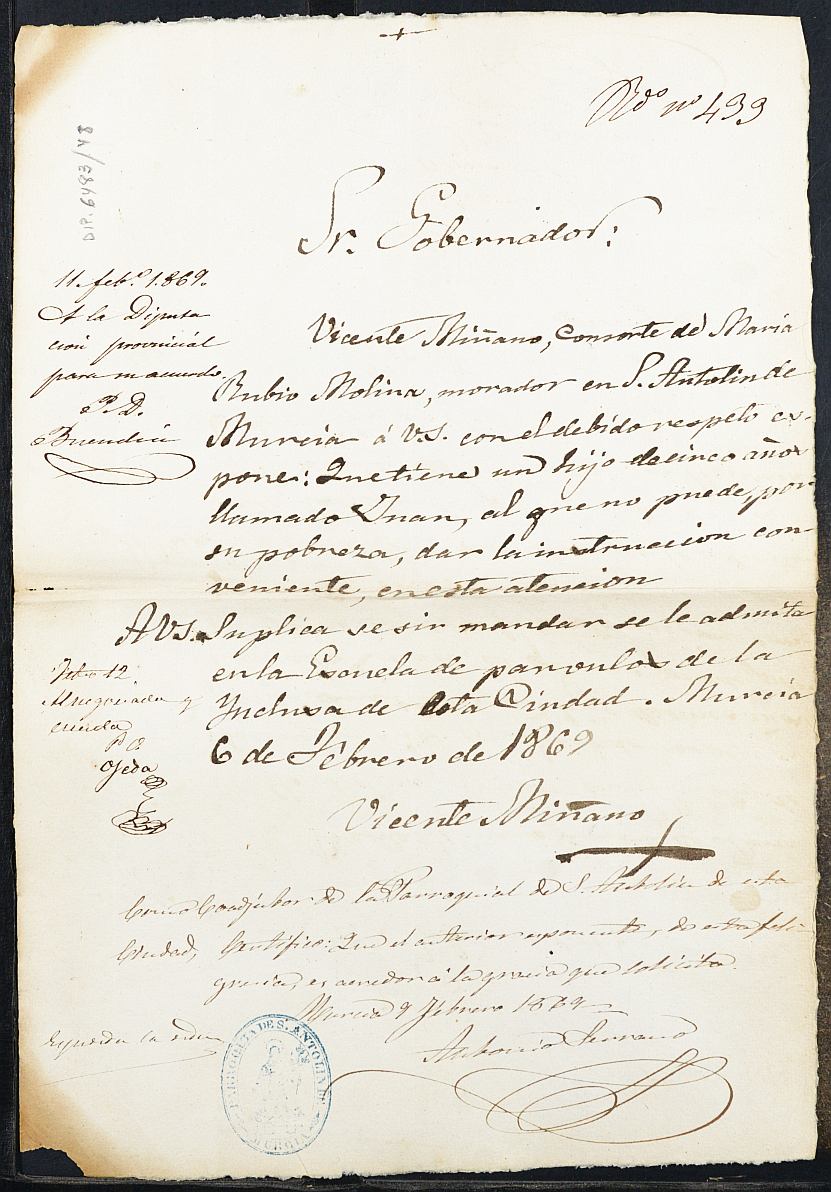 Rdo nº 433
DIP. 6483/48
Sr. Gobernador:
11 febº 1.869.
A la Diputa
ción provincial
para su acuerdo.
P. D.
Buendía
Vicente Miñano, consorte de María
Rubio Molina, morador en S. Antolin de
Murcia á V.S. con el debido respeto es-
pone: Que tiene un hijo de cinco años
llamado Juan, al que no puede, por
su pobreza, dar la instruccion con-
veniente, en esta atencion
A V.S. Suplica se sir mandar se le admita
en la Escuela de parvulos de la
Inclusa de esta Ciudad. Murcia
6 de Febrero de 1869
Febº 12.
Al negociado y
cuenda
P O
Ojeda
Vicente Miñano
Como Coadjutor de la Parroquial de S. Antolin de esta
Ciudad, Certifico: Que el anterior esponente, de esta feli-
gresia, es acreedor á la gracia que solicita.
Murcia 9 Febrero 1869
Antonio Serrano
PARROQUIA DE S. ANTOLIN DE
MURCIA